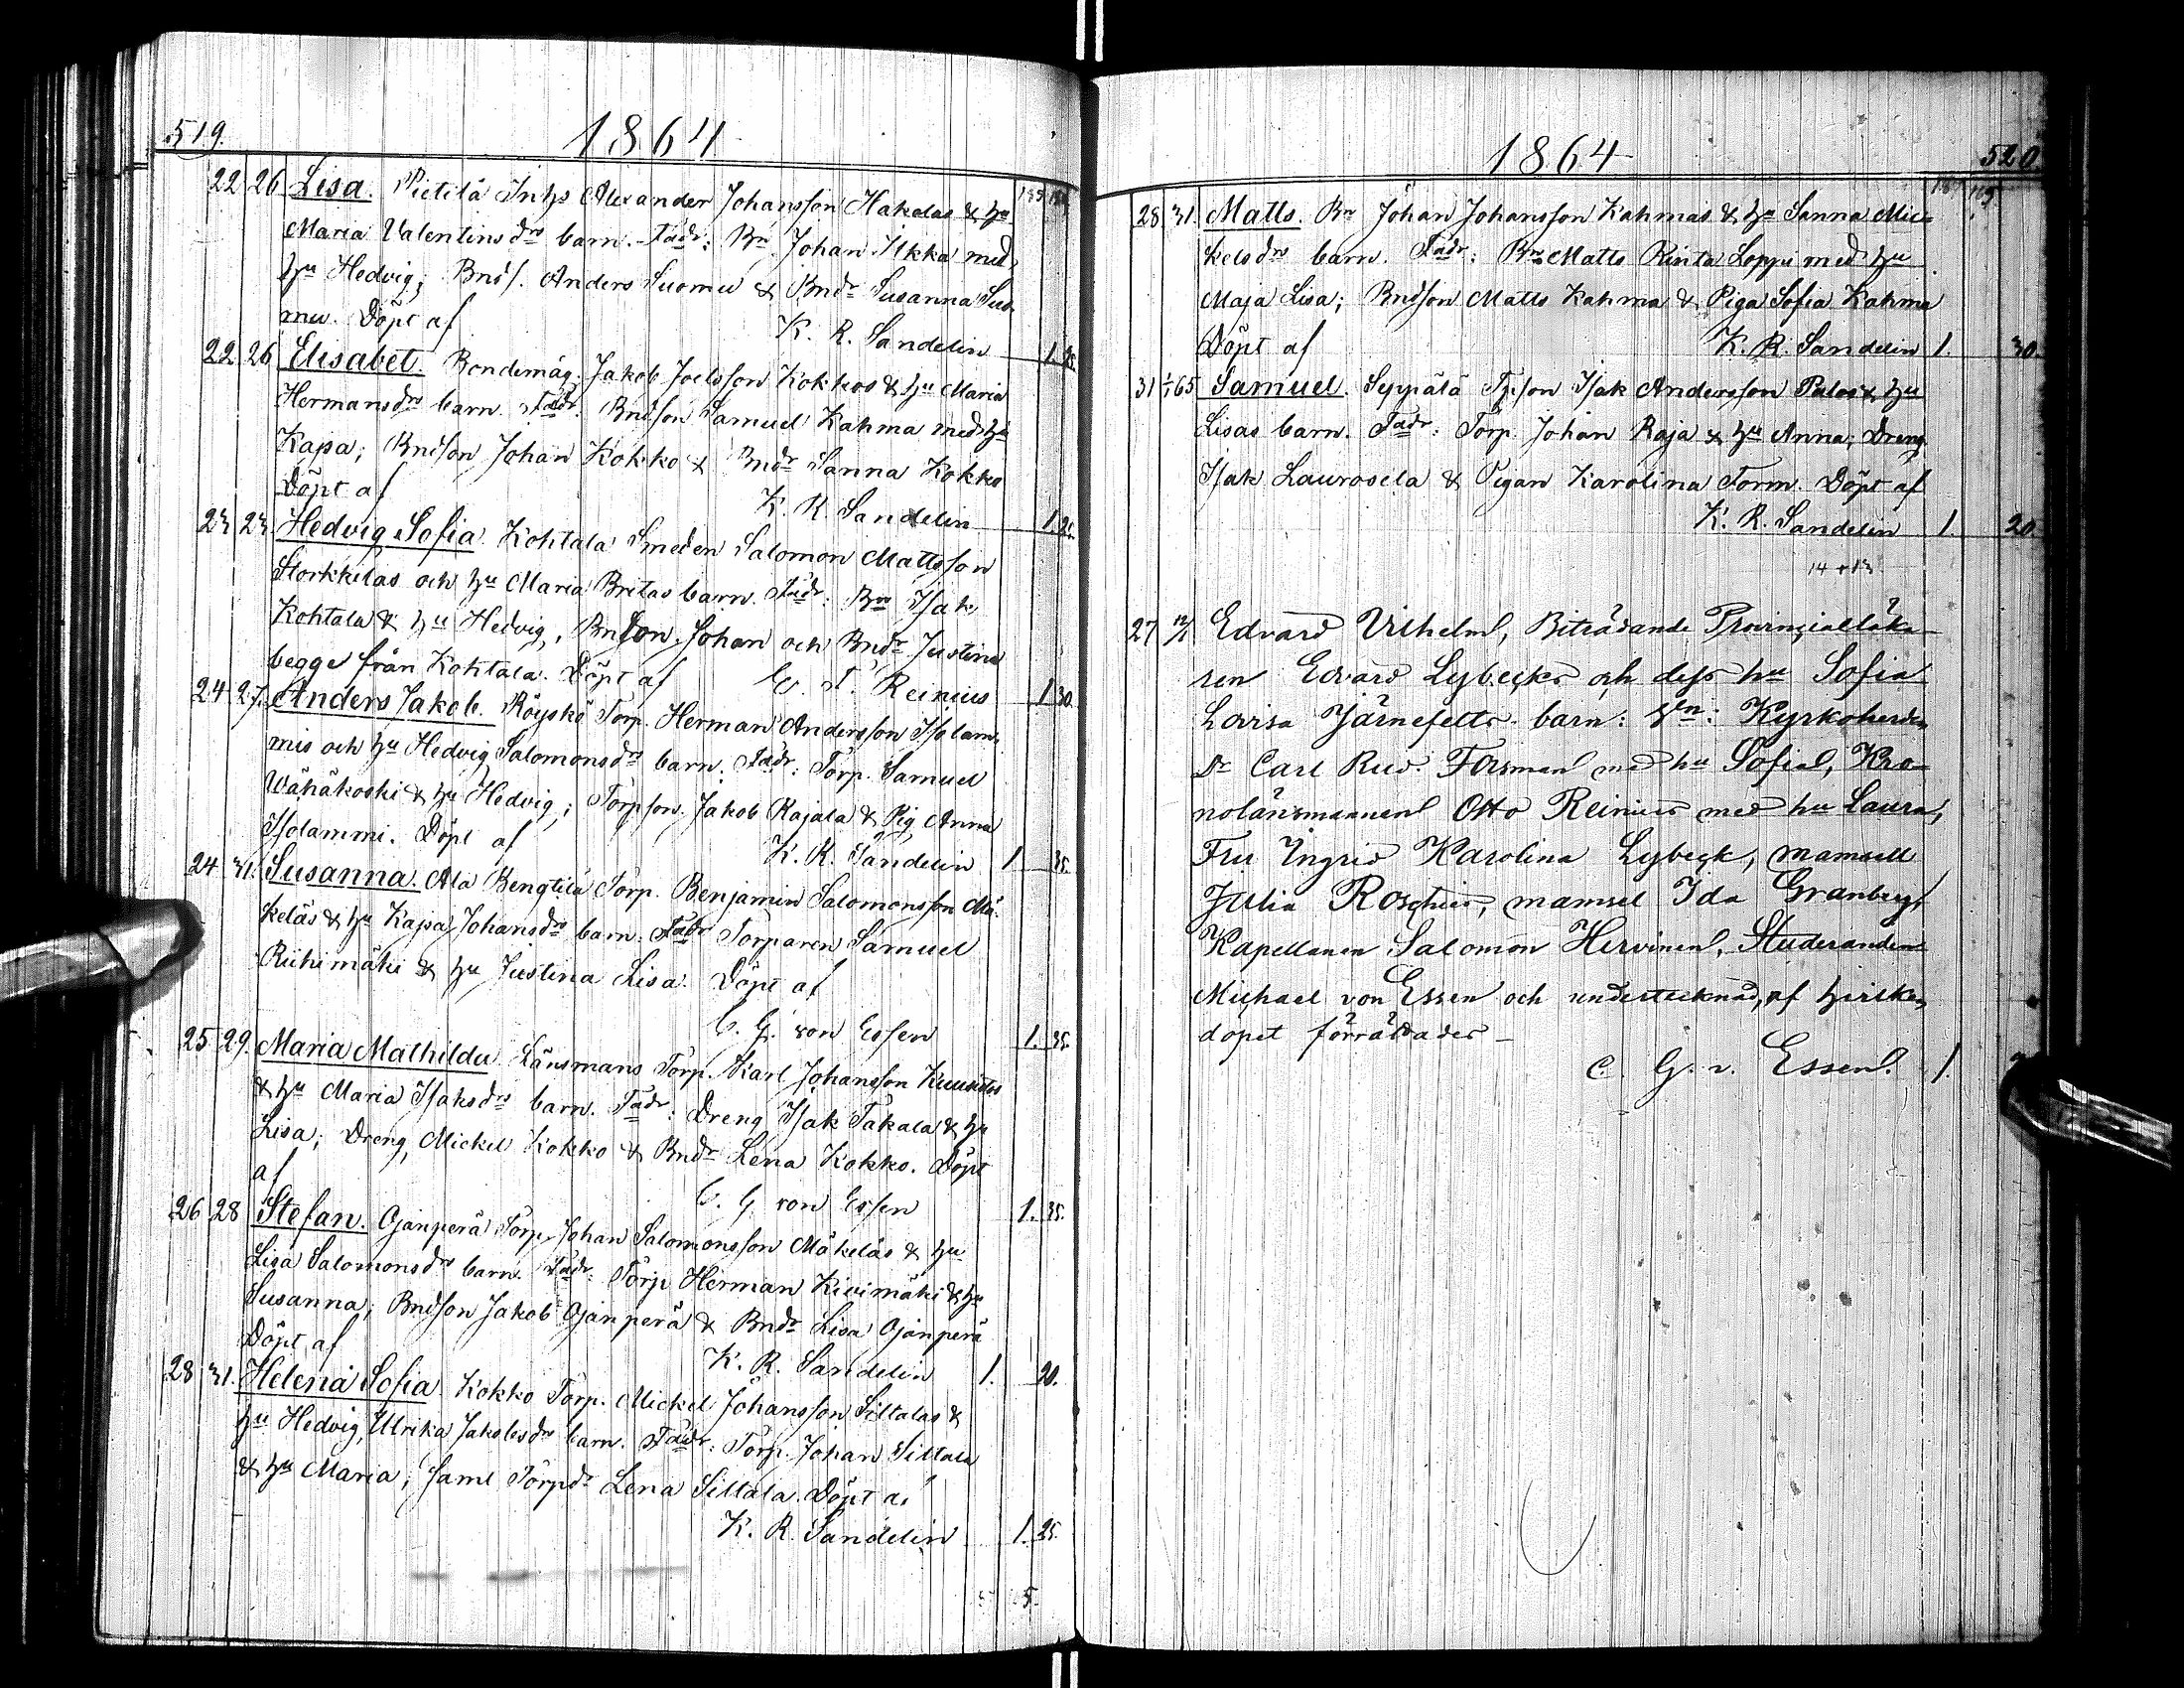 519.
1864
22 26 Lisa. Pietilä Inhs Alexander Johansson Hakalas & hu
Maria Valentinsdrs barn. Fadr: Bn. Johan Ilkka med
hu Hedvig; Bndś. Anders Suomu & Bndr Susanna Suo-
mu. Döpt af K. R. Sandelin 1. 25.
22 26 Elisabet. Bondemåg. Jakob Joelsson Kokkos & hu Maria
Hermansdrs barn. Fadr. Bndson Samuel Kahma med hu
Kajsa; Bndson Johan Kokko & Bndr Sanna Kokko
Döpt af K. R. Sandelin 1.
23 23 Hedvig Sofia. Kohtala Smeden Salomon Mattsson
Storkkilas och hu Maria Britas barn. Fadr: Bn Isak
Kohtala & hu Hedvig, Bndson Johan och Bndr Justina
begge från Kohtala. Döpt af Reinius 1 30.
24 27. Anders Jakob. Röyskö Torp. Herman Andersson Isolam-
mis och hu Hedvig Salomonsdrs barn. Fadr: Torp. Samuel
Wähäkoski & hu Hedvig; Torpson. Jakob Rajala & Pig. Anna
Isolammi. Döpt af K. R. Sandelin 1 35.
24 31. Susanna. Ala Bengtilä Torp. Benjamin Salomonsson Mä-
keläs & hu Kajsa Johansdrs barn. Fadr Torparen Samuel
Riihimäki & hu Justina Lisa. Döpt af
C. G. von Essen 1. 35.
25 29. Maria Mathilda. Länsmans Torp. Karl Johansson Kuusistos
& hu Maria Isaksdrs barn. Fadr: Dreng Isak Takala & hu
Lisa; Dreng, Mickel Kokko & Bndr Lena Kokko. Döpt
af C. G von Essen 1. 35.
26 28 Stefan. Ojanperä Torp. Johan Salomonsson Mäkeläs & hu
Lisa Salomonsdrs barn. Fadr: Torp Herman Kivimäki & hu
Susanna; Bndson Jakob Ojanperä & Bndr Lisa Ojanperä
Döpt af K. R. Sandelin 1. 20.
28 31. Helena Sofia. Kokko Torp. Mickel Johansson Siltalas &
hu Hedvig Ulrika Jakobsdrs barn. Fadr: Torp. Johan Siltala
& hu Maria; samt Torpdr Lena Siltala. Döpt af
K. R. Sandelin 1. 25.
5.
1864
520
28 31. Matts. Bn Johan Johansson Kahmas & hu Sanna Mic-
kelsdrs barn. Fadr: Bn Matts Rinta Loppi med hu
Maja Lisa; Bndson Matts Kahma & Piga Sofia Kahma
Döpt af K. R. Sandelin 1. 30.
31 1/1 65 Samuel. Seppälä Tpson Isak Andersson Palos & hu
Lisas barn. Fadr: Torp. Johan Raja & hu Anna; Dreng.
Isak Laurosela & Pigan Karolina Torm. Döpt af
K. R. Sandelin 1. 20.
14 + 13
27 12/1 Edvard Vilhelm, Biträdande Provinzialläka-
ren Edvard Lybecks och dess hu Sofia
Lovisa Järnefelts barn: Kyrkoherden
Dr Carl Rud. Forsman med hu Sofia, Kro-
nolänsmannen Otto Reinius med hu Laura,
Fru Ingrid Karolina Lybeck, mamsell
Julia Roschier, mamsel Ida Granberg,
Kapellanen Salomon Hirvinen, Studeranden
Michael von Essen och undertecknad, af hvilken
dopet förrättades –
C. G. v. Essen. 1.